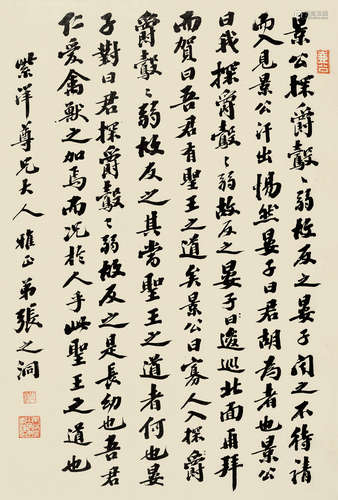 景公探爵鷇鷇弱故反之晏子聞之不待請
而入見景公汗出惕然晏子曰君胡為者也景公
曰我探爵鷇鷇弱故反之晏子曰逡巡北面再拜
而賀曰吾君有聖王之道矣景公曰寡人入探爵
鷇鷇弱故反之其當聖王之道者何也晏
子對曰君探爵鷇鷇弱故反之是長幼也吾君
仁愛禽獸之加焉而況於人乎此聖王之道也
紫洋尊兄大人雅正弟張之洞